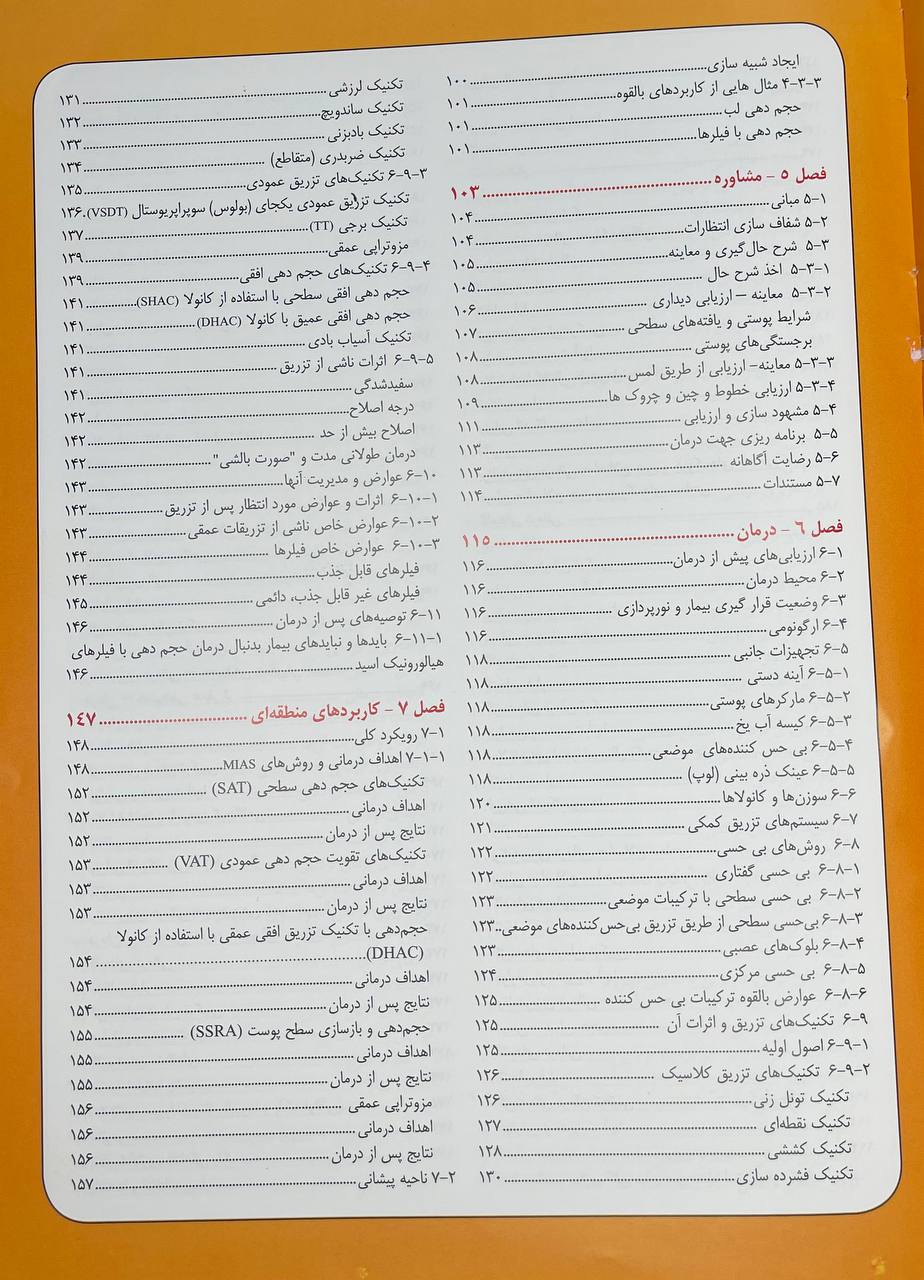 ایجاد شبیه سازی ۱۰۰
۴-۳-۳ مثال هایی از کاربردهای بالقوه ۱۰۱
حجم دهی لب ۱۰۱
حجم دهی با فیلرها ۱۰۱
فصل ۵ - مشاوره ۱۰۳
۵-۱ مبانی ۱۰۴
۵-۲ شفاف سازی انتظارات ۱۰۴
۵-۳ شرح حال‌گیری و معاینه ۱۰۵
۵-۳-۱ اخذ شرح حال ۱۰۵
۵-۳-۲ معاینه – ارزیابی دیداری ۱۰۶
شرایط پوستی و یافته‌های سطحی ۱۰۷
برجستگی‌های پوستی ۱۰۸
۵-۳-۳ معاینه- ارزیابی از طریق لمس ۱۰۸
۵-۳-۴ ارزیابی خطوط و چین و چروک ها ۱۰۹
۵-۴ مشهود سازی و ارزیابی ۱۱۱
۵-۵ برنامه ریزی جهت درمان ۱۱۳
۵-۶ رضایت آگاهانه ۱۱۳
۵-۷ مستندات ۱۱۴
فصل ۶ - درمان ۱۱۵
۶-۱ ارزیابی‌های پیش از درمان ۱۱۶
۶-۲ محیط درمان ۱۱۶
۶-۳ وضعیت قرار گیری بیمار و نورپردازی ۱۱۶
۶-۴ ارگونومی ۱۱۶
۶-۵ تجهیزات جانبی ۱۱۸
۶-۵-۱ آینه دستی ۱۱۸
۶-۵-۲ مارکرهای پوستی ۱۱۸
۶-۵-۳ کیسه آب یخ ۱۱۸
۶-۵-۴ بی حس کننده‌های موضعی ۱۱۸
۶-۵-۵ عینک ذره بینی (لوپ) ۱۱۸
۶-۶ سوزن‌ها و کانولاها ۱۲۰
۶-۷ سیستم‌های تزریق کمکی ۱۲۱
۶-۸ روش‌های بی حسی ۱۲۲
۶-۸-۱ بی حسی گفتاری ۱۲۲
۶-۸-۲ بی حسی سطحی با ترکیبات موضعی ۱۲۳
۶-۸-۳ بی‌حسی سطحی از طریق تزریق بی‌حس‌کننده‌های موضعی ۱۲۳
۶-۸-۴ بلوک‌های عصبی ۱۲۳
۶-۸-۵ بی حسی مرکزی ۱۲۴
۶-۸-۶ عوارض بالقوه ترکیبات بی حس کننده ۱۲۵
۶-۹ تکنیک‌های تزریق و اثرات آن ۱۲۵
۶-۹-۱ اصول اولیه ۱۲۵
۶-۹-۲ تکنیک‌های تزریق کلاسیک ۱۲۶
تکنیک تونل زنی ۱۲۶
تکنیک نقطه‌ای ۱۲۷
تکنیک کششی ۱۲۸
تکنیک فشرده سازی ۱۳۰
تکنیک لرزشی ۱۳۱
تکنیک ساندویچ ۱۳۲
تکنیک بادبزنی ۱۳۳
تکنیک ضربدری (متقاطع) ۱۳۴
۶-۹-۳ تکنیک‌های تزریق عمودی ۱۳۵
تکنیک تزریق عمودی یکجای (بولوس) سوپراپریوستال (VSDT) ۱۳۶
تکنیک برجی (TT) ۱۳۷
مزوتراپی عمقی ۱۳۹
۶-۹-۴ تکنیک‌های حجم دهی افقی ۱۳۹
حجم دهی افقی سطحی با استفاده از کانولا (SHAC) ۱۴۱
حجم دهی افقی عمیق با کانولا (DHAC) ۱۴۱
تکنیک آسیاب بادی ۱۴۱
۶-۹-۵ اثرات ناشی از تزریق ۱۴۱
سفیدشدگی ۱۴۱
درجه اصلاح ۱۴۲
اصلاح بیش از حد ۱۴۲
درمان طولانی مدت و "صورت بالشی" ۱۴۲
۶-۱۰ عوارض و مدیریت آنها ۱۴۳
۶-۱۰-۱ اثرات و عوارض مورد انتظار پس از تزریق ۱۴۳
۶-۱۰-۲ عوارض خاص ناشی از تزریقات عمقی ۱۴۳
۶-۱۰-۳ عوارض خاص فیلرها ۱۴۴
فیلرهای قابل جذب ۱۴۴
فیلرهای غیر قابل جذب، دائمی ۱۴۵
۶-۱۱ توصیه‌های پس از درمان ۱۴۶
۶-۱۱-۱ بایدها و نبایدهای بیمار بدنبال درمان حجم دهی با فیلرهای
هیالورونیک اسید ۱۴۶
فصل ۷ - کاربردهای منطقه‌ای ۱۴۷
۷-۱ رویکرد کلی ۱۴۸
۷-۱-۱ اهداف درمانی و روش‌های MIAS ۱۴۸
تکنیک‌های حجم دهی سطحی (SAT) ۱۵۲
اهداف درمانی ۱۵۲
نتایج پس از درمان ۱۵۲
تکنیک‌های تقویت حجم دهی عمودی (VAT) ۱۵۳
اهداف درمانی ۱۵۳
نتایج پس از درمان ۱۵۳
حجم‌دهی با تکنیک تزریق افقی عمقی با استفاده از کانولا
(DHAC) ۱۵۴
اهداف درمانی ۱۵۴
نتایج پس از درمان ۱۵۴
حجم‌دهی و بازسازی سطح پوست (SSRA) ۱۵۵
اهداف درمانی ۱۵۵
نتایج پس از درمان ۱۵۵
مزوتراپی عمقی ۱۵۶
اهداف درمانی ۱۵۶
نتایج پس از درمان ۱۵۶
۷-۲ ناحیه پیشانی ۱۵۷